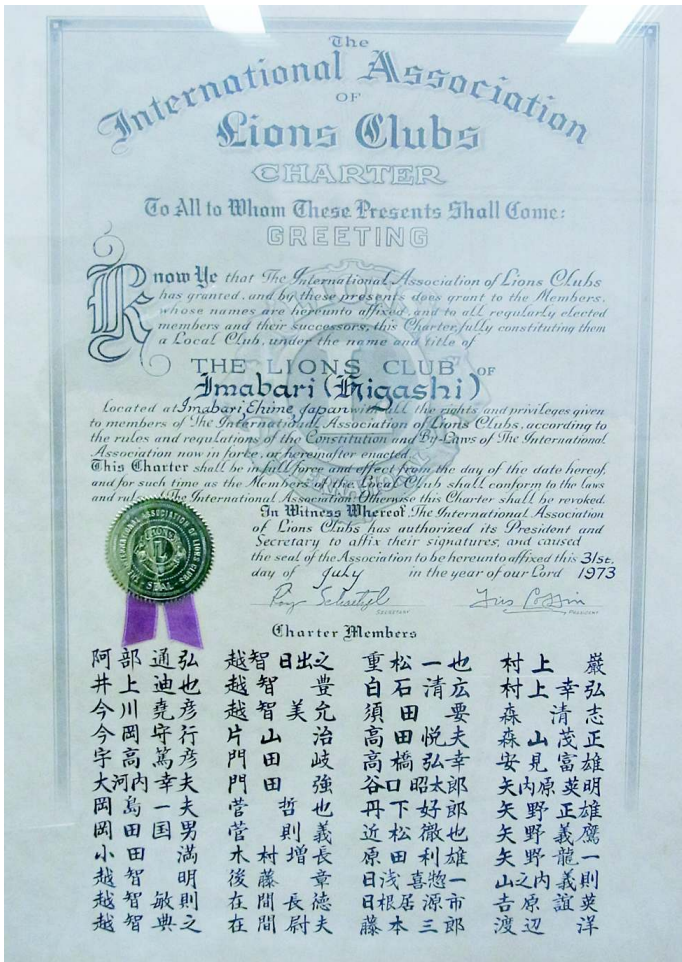 The
International Association
OF
Lions Clubs
CHARTER
To All to Whom These Presents Shall Come:
GREETING
Know Ye that The International Association of Lions Clubs
has granted, and by these presents does grant to the Members,
whose names are hereunto affixed, and to all regularly elected
members and their successors, this Charter, fully constituting them
a Local Club, under the name and title of
THE LIONS CLUB OF
Imabari (Higashi)
Located at Imabari, Ehime, Japan with all the rights and privileges given
to members of The International Association of Lions Clubs, according to
the rules and regulations of the Constitution and By-Laws of The International
Association now in force, or hereafter enacted.
This Charter shall be in full force and effect from the day of the date hereof,
and for such time as the Members of the Local Club shall conform to the laws
and rules of The International Association. Otherwise this Charter shall be revoked.
In Witness Whereof, The International Association
of Lions Clubs has authorized its President and
Secretary to affix their signatures, and caused
the seal of the Association to be hereunto affixed this 31st.
day of July in the year of our Lord 1973
SECRETARY PRESIDENT
INTERNATIONAL ASSOCIATION OF LIONS CLUBS
SEAL
Charter Members
阿部通弘 越智日出之 重松一也 村上巌
井上迪也 越智豊 白石清広 村上幸弘
今川堯彦 越智美允 須田要 森清志
今岡守行 片山治 高田悦夫 森山茂正
宇高篤彦 門田岐 高橋弘幸 安見富雄
大河内幸夫 門田強 谷口昭太郎 矢内原英明
岡島一夫 菅哲也 丹下好郎 矢野正雄
岡田国男 菅則義 近松徹也 矢野義鷹
小田満 木村増長 原田利雄 矢野龍一
越智明 後藤章 日浅喜惣一 山之内義則
越智敏則 在間長徳 日根居源市 吉原誼英
越智典之 在間尉夫 藤本三郎 渡辺洋